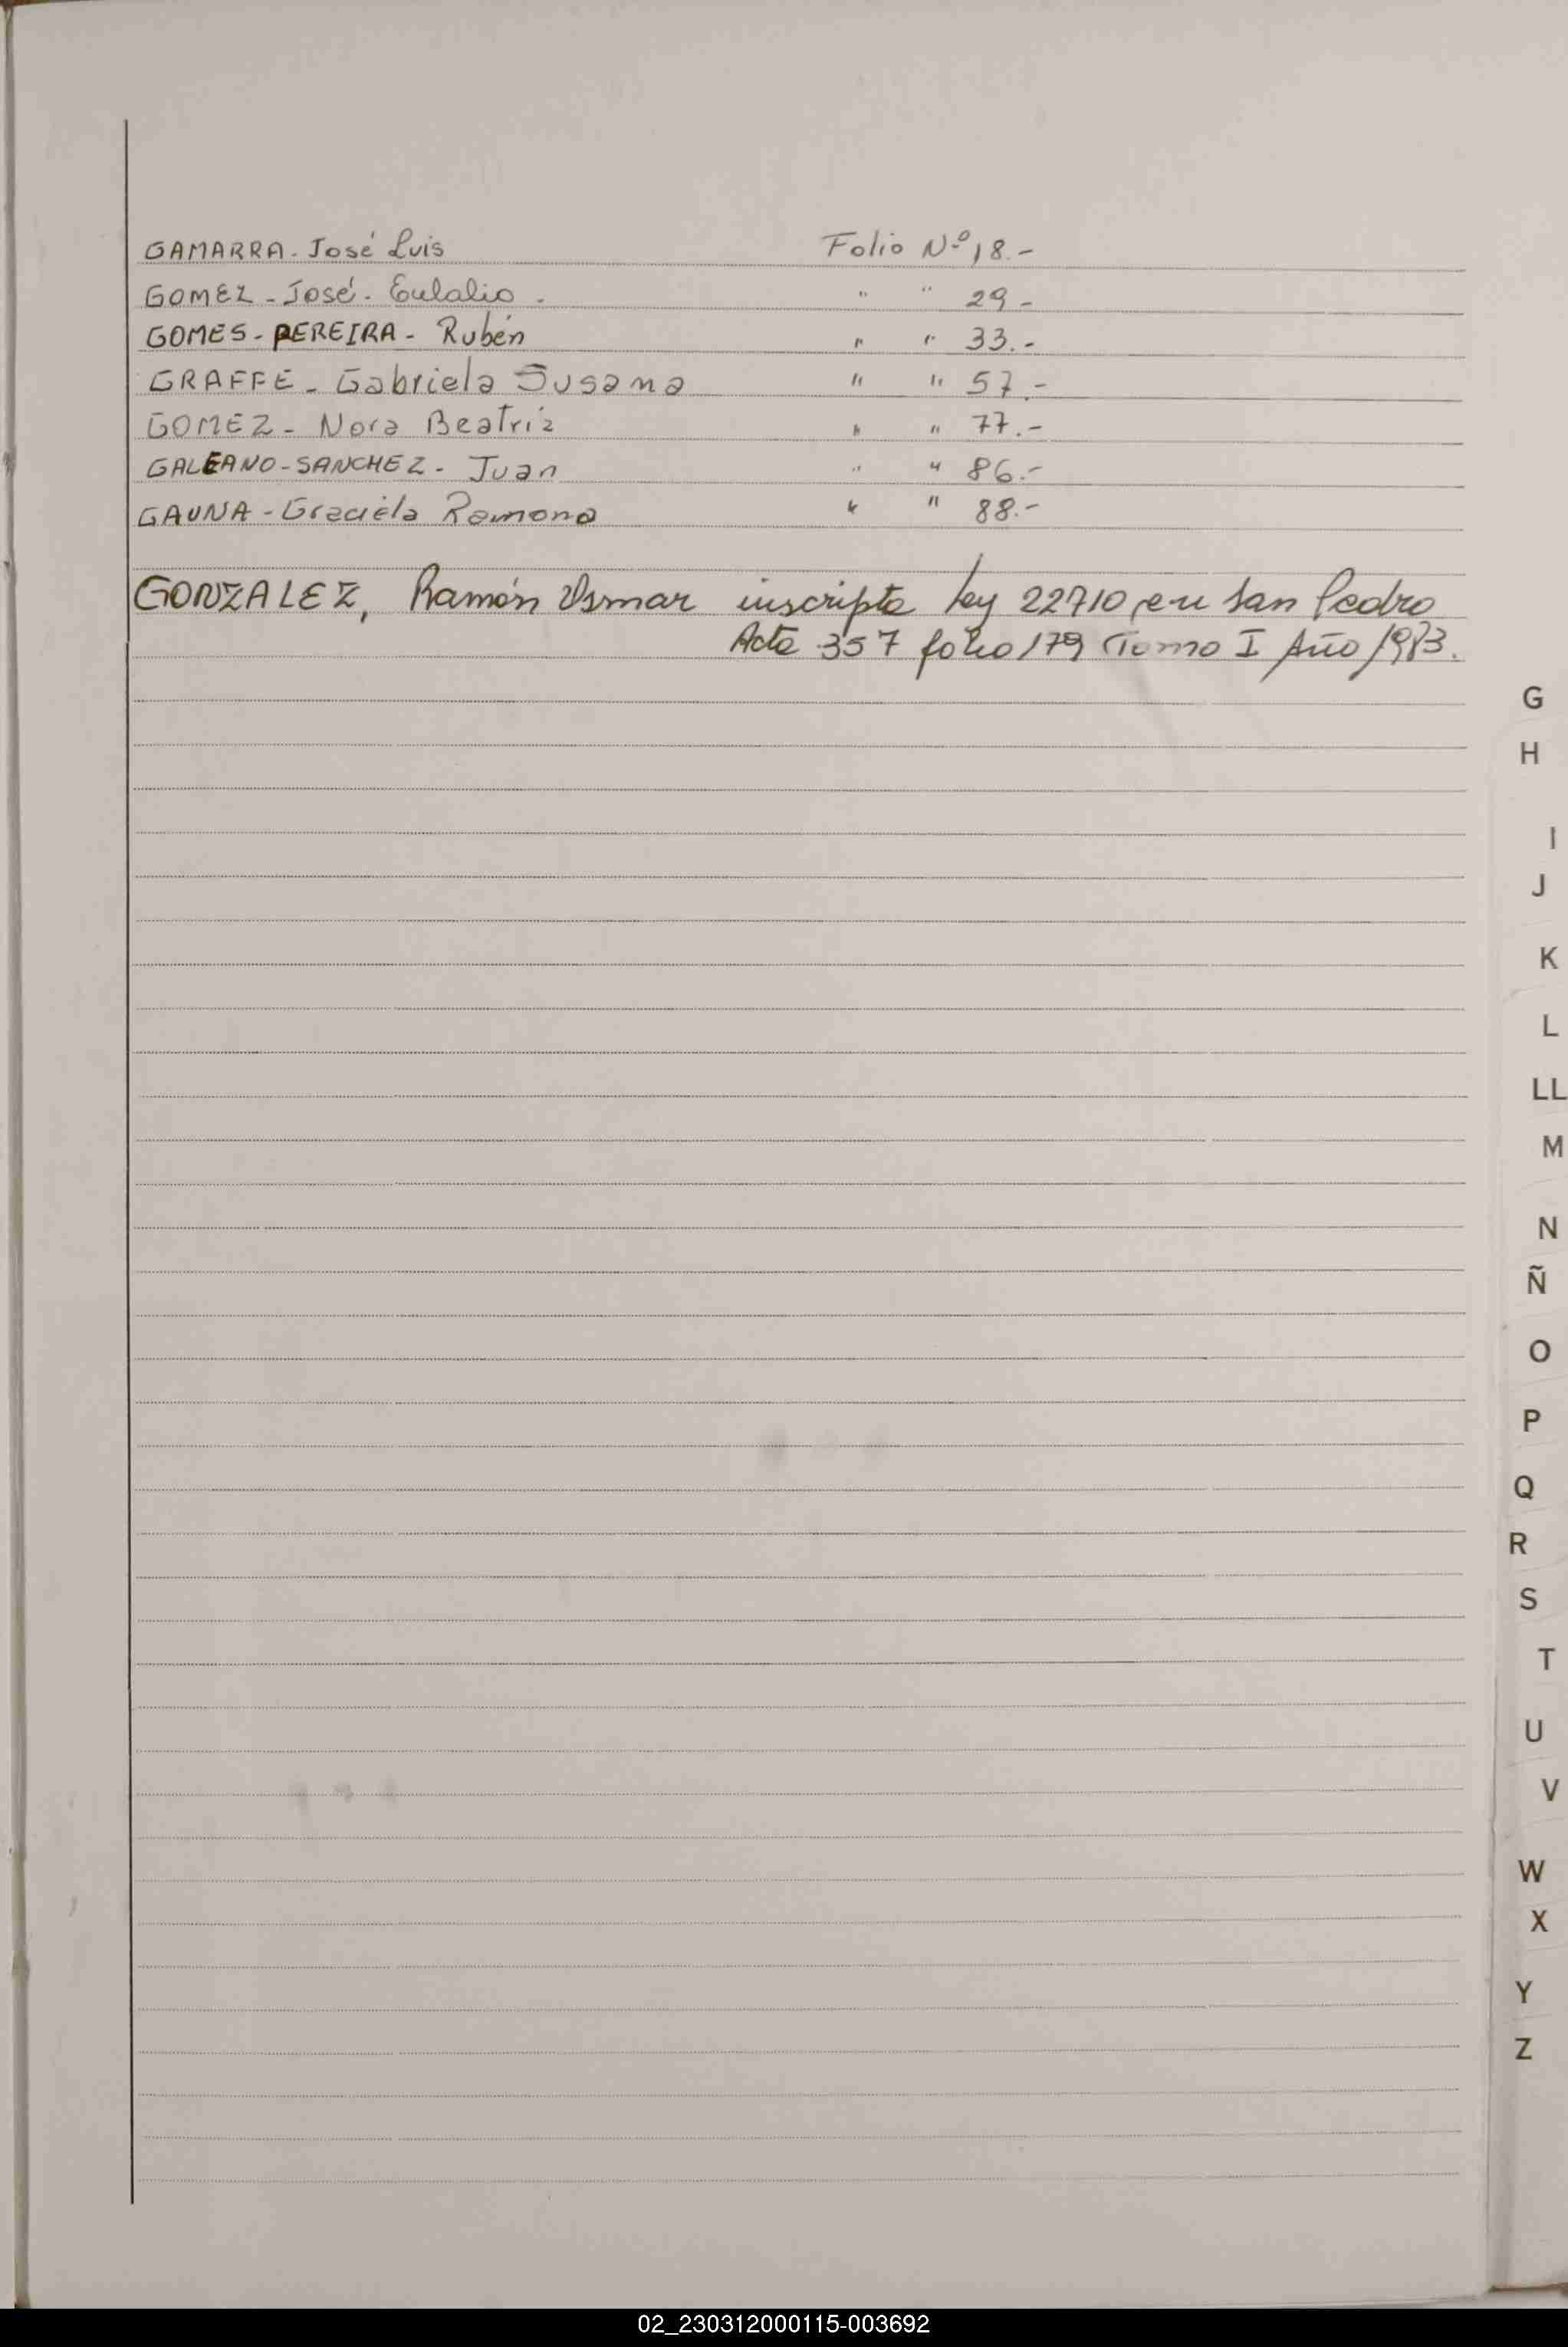 GAMARRA - José Luis Folio Nº 18.-
GOMEZ - José - Eulalio - " " 29 -
GOMES - PEREIRA - Rubén " " 33.-
GRAFFE - Gabriela Susana " " 57.-
GOMEZ - Nora Beatriz " " 77.-
GALEANO - SANCHEZ - Juan " " 86.-
GAUNA - Graciela Ramona " " 88.-
GONZALEZ, Ramón inscripto ley 22710 en San Pedro
Acta 357 folio 179 Tomo I Año 1983.
G
H
I
J
K
L
LL
M
N
Ñ
O
P
Q
R
S
T
U
V
W
X
Y
Z
02_230312000115-003692